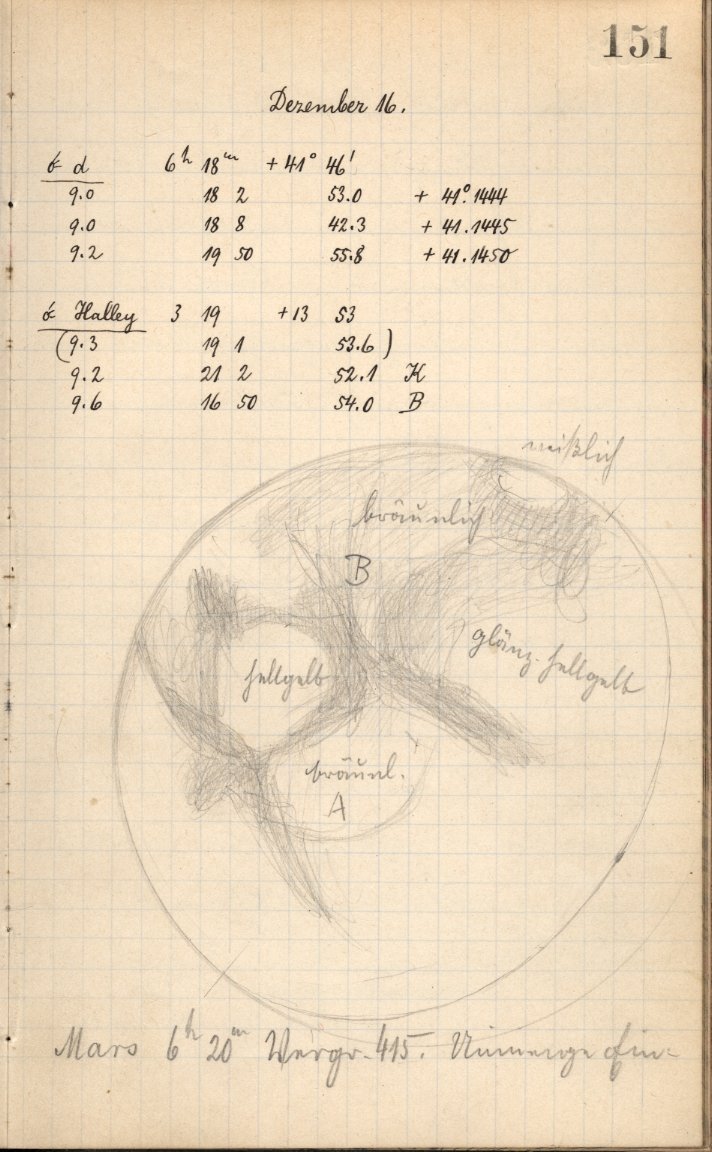 151
Dezember 16.
d 6h 18m + 41° 46'
9.0 18 2 53.0 + 41°.1444
9.0 18 8 42.3 + 41.1445
9.2 19 50 55.8 + 41.1450
Halley 3 19 + 13 53
(9.3 19 1 53.6)
9.2 21 2 52.1 K
9.6 16 50 54.0 B
weißlich
bräunlich
B
glänz. hellgelb
hellgelb
bräunl.
A
Mars 6h 20m Vergr. 415.